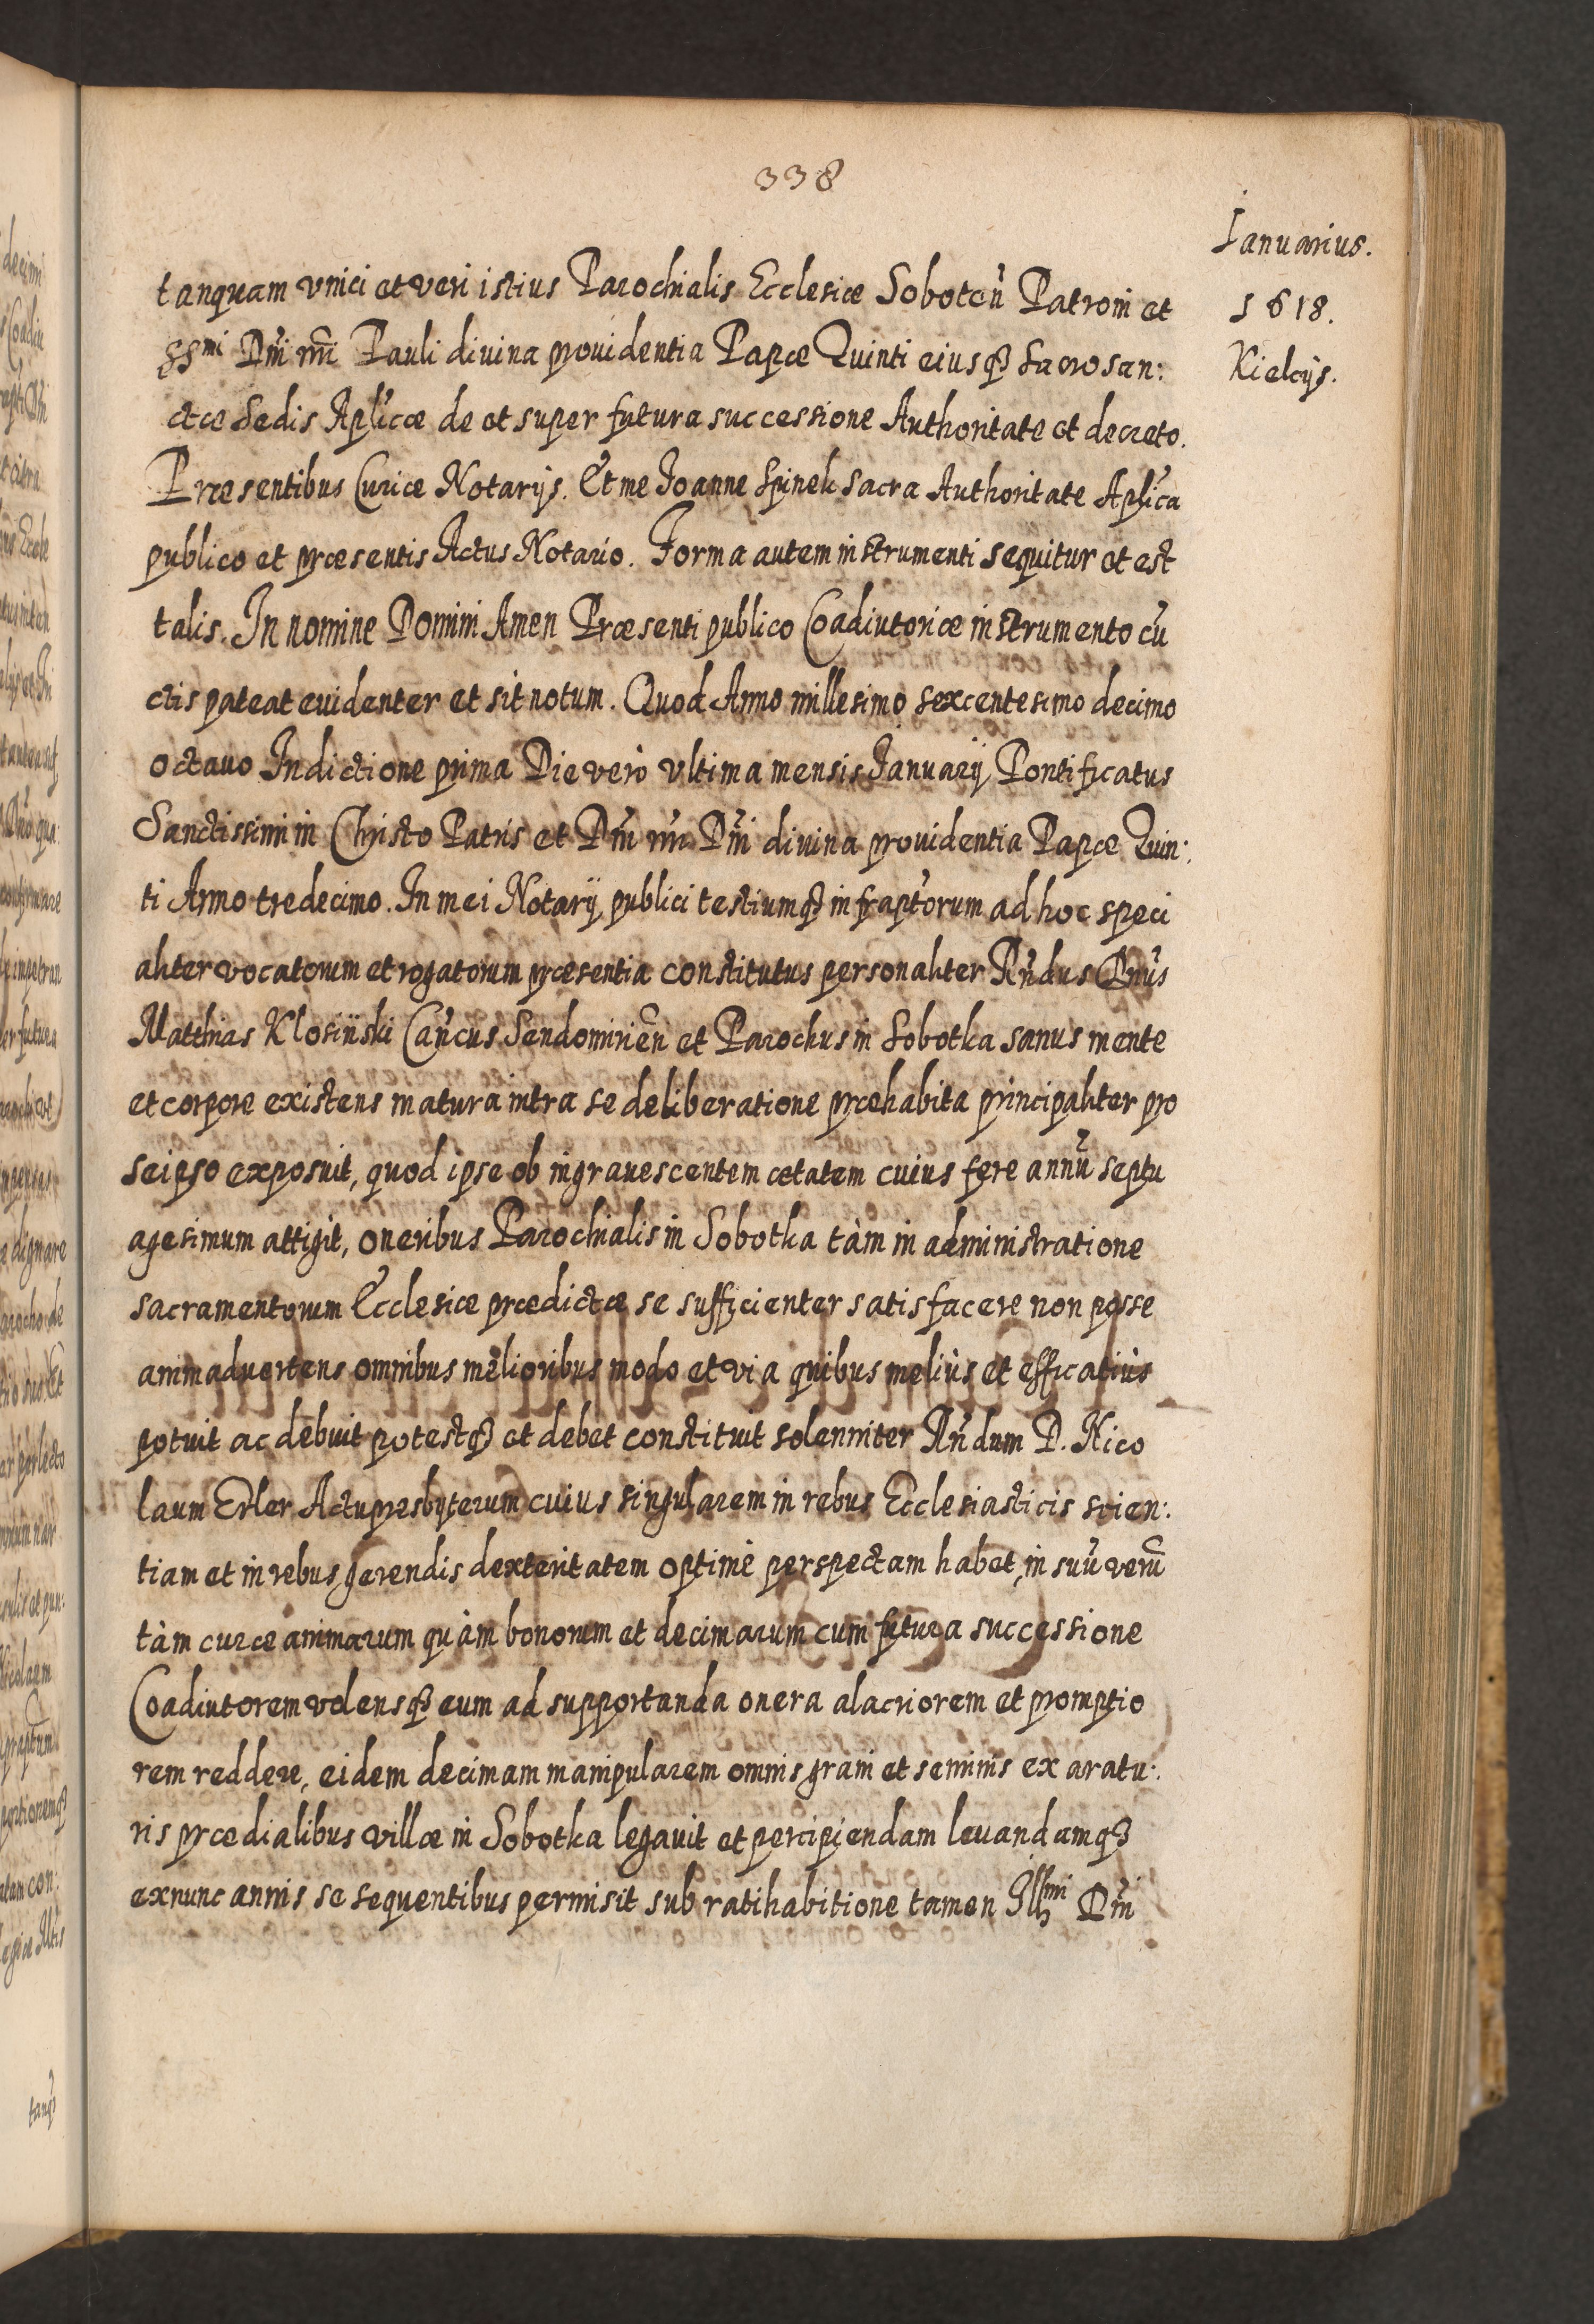 338
Ianuarius.
1618.
Kielcijs.
tanquam vnici et veri istius Parochialis Ecclesiæ Sobotcen̄ Patroni et
SSmi Dn̄i nr̄i Pauli divina prouidentia Papæ Quinti eiusq3 Sacrosan:
ctæ Sedis Apl̄icæ de et super futura successione Authoritate et decreto.
Præsentibus Curiæ Notarijs. Et me Ioanne Spinek sacra Authoritate Apl̄ica
publico et præsentis Actus Notario. Forma autem instrumenti sequitur et est
talis. In nomine Domini Amen Præsenti publico Coadiutoriæ instrumento cū
ctis pateat euidenter et sit notum. Quod Anno millesimo sexcentesimo decimo
octauo Indictione prima Die verò vltima mensis Ianuarij Pontificatus
Sanctissimi in Christo Patris et Dn̄i nr̄i Dn̄i divina prouidentia Papæ Quin:
ti Anno tredecimo. In mei Notarij publici testiumq3 infrapt̄orum ad hoc speci
aliter vocatorum et rogatorum præsentia constitutus personaliter Rn̄dus Dn̄us
Matthias Klosiński Can̄cus Sendomirien̄ et Parochus in Sobotka sanus mente
et corpore existens matura intra se deliberatione præhabita principaliter pro
seipso exposuit, quod ipse ob ingrauescentem ætatem cuius fere annū septu
agesimum attigit, oneribus Parochialis in Sobotka tàm in administratione
sacramentorum Ecclesiæ prædictæ se sufficienter satisfacere non posse
animaduertens omnibus melioribus modo et via quibus meliùs et efficatiùs
potuit ac debuit potestq3 et debet constituit solenniter Rn̄dum D. Nico
laum Erler Actupresbyterum cuius singularem in rebus Ecclesiasticis scien:
tiam et in rebus gerendis dexteritatem optimè perspectam habet, in suū verū
tàm curæ animarum quàm bonorum et decimarum cum futura successione
Coadiutorem volensq3 eum ad supportanda onera alacriorem et promptio
rem reddere, eidem decimam manipularem omnis grani et seminis ex aratu:
ris prædialibus villæ in Sobotka legauit et percipiendam leuandamq3
exnunc annis se sequentibus permisit sub ratihabitione tamen Illmi Dn̄i